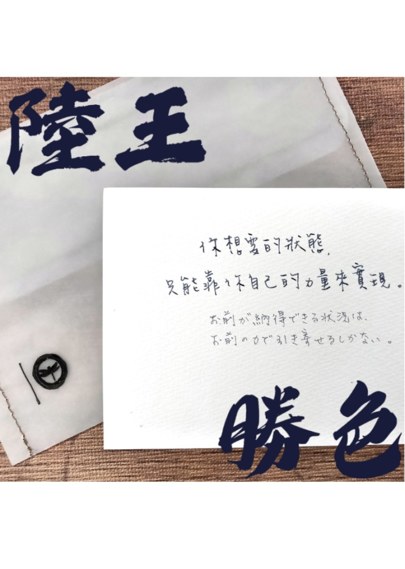 陸王
你想要的狀態，
只能靠你自己的力量來實現。
お前が納得できる状況は、
お前の力で引き寄せるしかない。
勝色